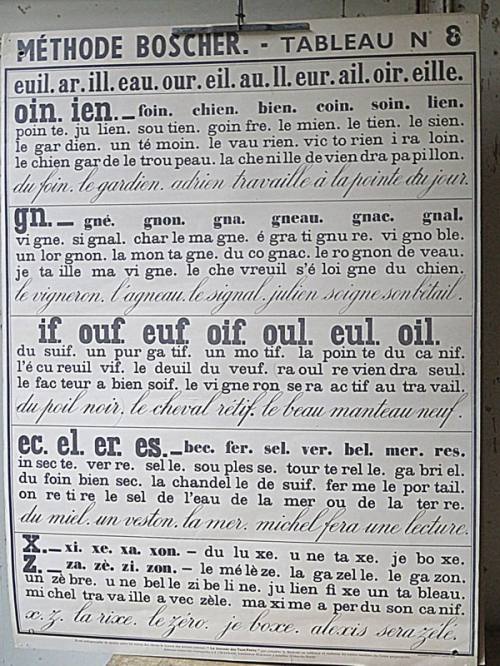 MÉTHODE BOSCHER. - TABLEAU N° 8
euil. ar. ill. eau. our. eil. au. ll. eur. ail. oir. eille.
oin. ien. — foin. chien. bien. coin. soin. lien.
poin te. ju lien. sou tien. goin fre. le mien. le tien. le sien.
le gar dien. un té moin. le vau rien. vic to rien i ra loin.
le chien gar de le trou peau. la che nille de vien dra pa pi llon.
du foin. le gardien. adrien travaille à la pointe du jour.
gn. — gné. gnon. gna. gneau. gnac. gnal.
vi gne. si gnal. char le ma gne. é gra ti gnu re. vi gno ble.
un lor gnon. la mon ta gne. du co gnac. le ro gnon de veau.
je ta ille ma vi gne. le che vreuil s'é loi gne du chien.
le vigneron. l'agneau. le signal. julien soigne son bétail.
if. ouf. euf. oif. oul. eul. oil.
du suif. un pur ga tif. un mo tif. la poin te du ca nif.
l'é cu reuil vif. le deuil du veuf. ra oul re vien dra seul.
le fac teur a bien soif. le vi gne ron se ra ac tif au tra vail.
du poil noir. le cheval rétif. le beau manteau neuf.
ec. el. er. es. — bec. fer. sel. ver. bel. mer. res.
in sec te. ver re. sel le. sou ples se. tour te rel le. ga bri el.
du foin bien sec. la chan del le de suif. fer me le por tail.
on re ti re le sel de l'eau de la mer ou de la ter re.
du miel. un veston. la mer. michel fera une lecture.
X. — xi. xe. xa. xon. — du lu xe. u ne ta xe. je bo xe.
Z. — za. zè. zi. zon. — le mé lè ze. la ga zel le. le ga zon.
un zè bre. u ne bel le zi be li ne. ju lien fi xe un ta bleau.
mi chel tra va ille a vec zèle. ma xi me a per du son ca nif.
x. z. la rixe. le zéro. je boxe. alexis sera zélé.